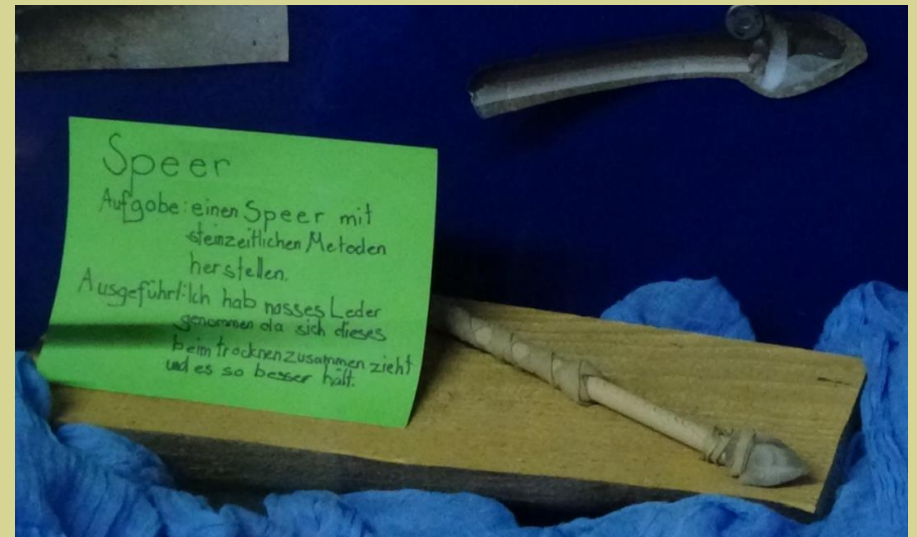 Speer
Aufgabe: einen Speer mit
steinzeitlichen Metoden
herstellen.
Ausgeführt: Ich hab nasses Leder
genommen da sich dieses
beim trocknen zusammen zieht
und es so besser hält.